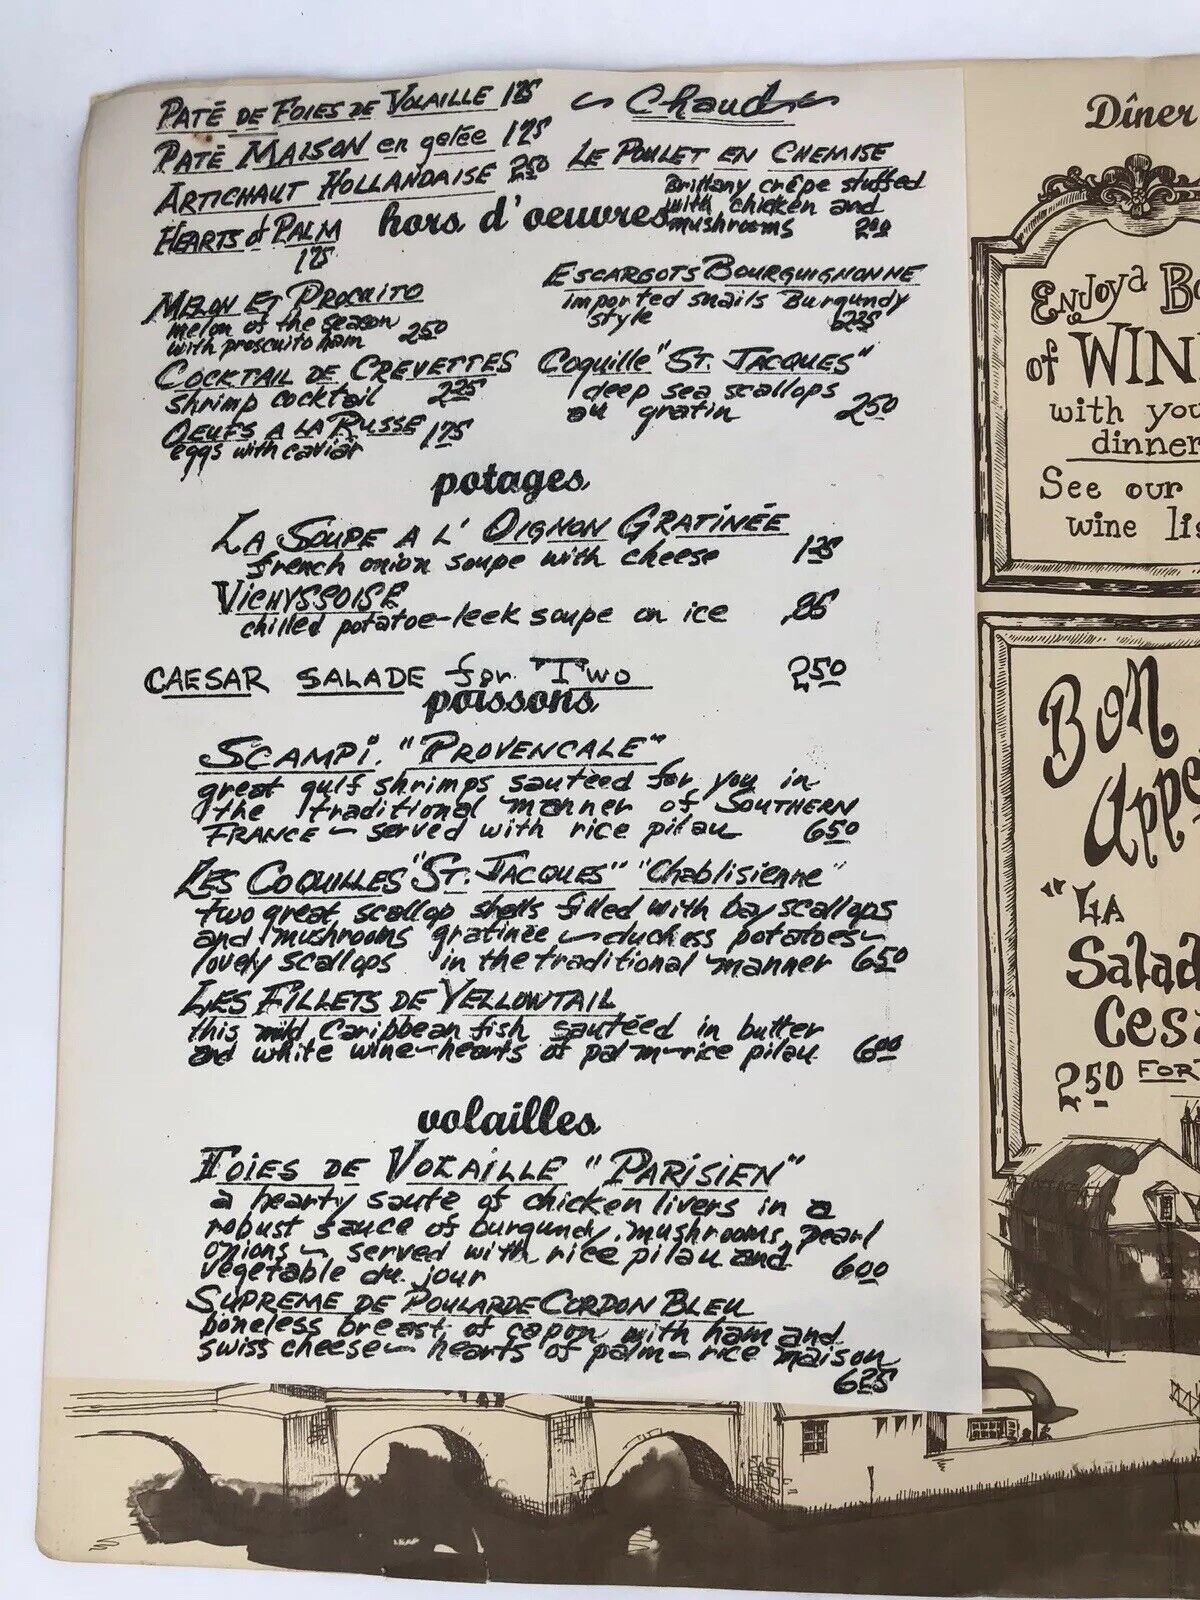 PATÉ DE FOIES DE VOLAILLE 1 75
PATÉ MAISON en gelée 1 75
ARTICHAUT HOLLANDAISE 2 50
HEARTS of PALM
1 75
hors d'oeuvres
MELON ET PROCUITO
melon of the season
with proscuito ham 2 50
COCKTAIL DE CREVETTES
shrimp cocktail 2 25
OEUFS A LA RUSSE 1 75
eggs with caviar
Chaud
LE POULET EN CHEMISE
Brittany crêpe stuffed
with chicken and
mushrooms 2 00
ESCARGOTS BOURGUIGNONNE
imported snails Burgundy
style 2 25
Coquille "ST. JACQUES"
deep sea scallops
au gratin 2 50
potages
LA SOUPE A L' OIGNON GRATINÉE
french onion soupe with cheese 1 25
VICHYSSOISE
chilled potatoe-leek soupe on ice .85
CAESAR SALADE for Two 2 50
poissons
SCAMPI. "PROVENCALE"
great gulf shrimps sautéed for you in
the traditional manner of SOUTHERN
FRANCE ~ served with rice pilau 6 50
LES COQUILLES "ST. JACQUES" "Chablisienne"
two great scallop shells filled with bay scallops
and mushrooms gratinée ~ duchess potatoes ~
lovely scallops in the traditional manner 6 50
LES FILLETS DE YELLOWTAIL
this mild Caribbean fish sautéed in butter
and white wine ~ hearts of palm ~ rice pilau 6 00
volailles
FOIES DE VOLAILLE "PARISIEN"
a hearty sauté of chicken livers in a
robust sauce of burgundy, mushrooms, pearl
onions ~ served with rice pilau and
vegetable du jour 6 00
SUPREME DE POULARDE CORDON BLEU
boneless breast of capon with ham and
swiss cheese ~ hearts of palm ~ rice maison
6 25
Dîner
ENJOY a Bo
of WIN
with you
dinner
See our
wine lis
Bon
Appe
"LA
Salad
Cesa
2 50 FOR